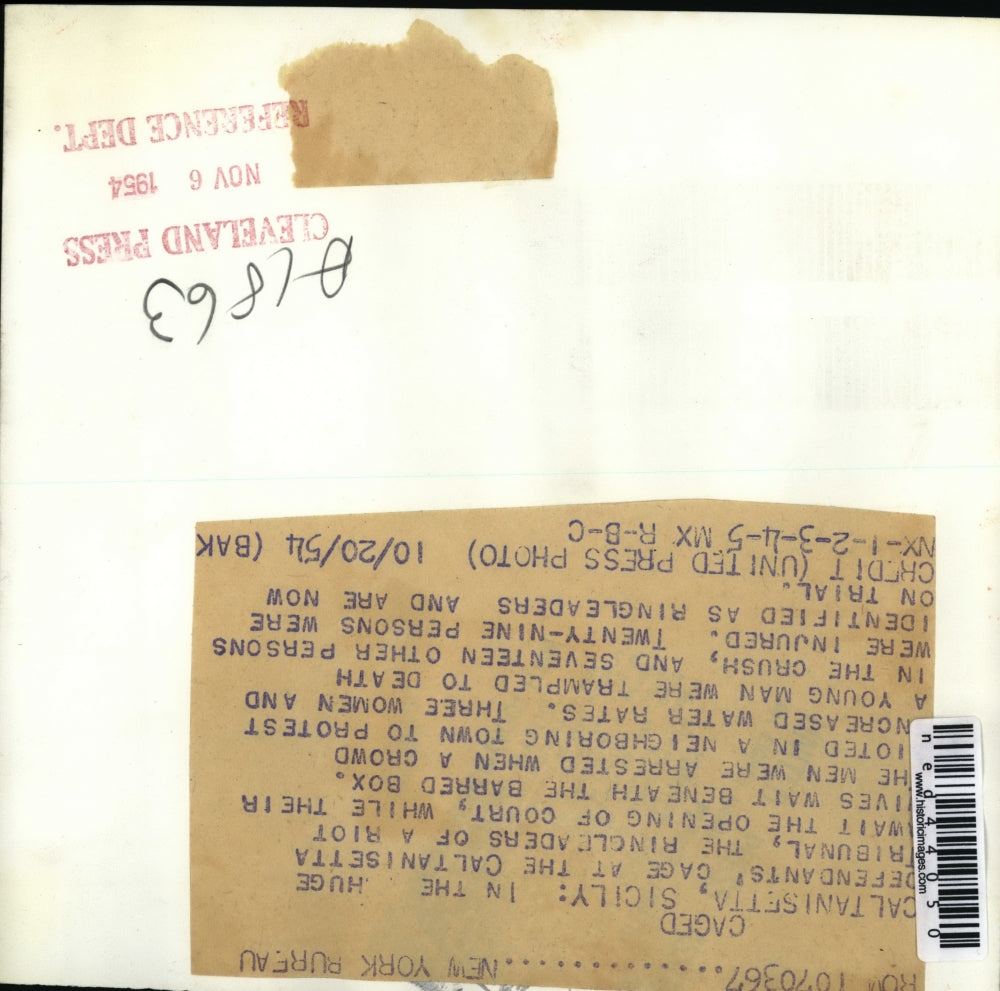 ROM 1070367...............NEW YORK BUREAU
CAGED
CALTANISETTA, SICILY: IN THE HUGE
DEFENDANTS' CAGE AT THE CALTANISETTA
TRIBUNAL, THE RINGLEADERS OF A RIOT
WAIT THE OPENING OF COURT, WHILE THEIR
IVES WAIT BENEATH THE BARRED BOX.
HE MEN WERE ARRESTED WHEN A CROWD
IOTED IN A NEIGHBORING TOWN TO PROTEST
NCREASED WATER RATES. THREE WOMEN AND
A YOUNG MAN WERE TRAMPLED TO DEATH
IN THE CRUSH, AND SEVENTEEN OTHER PERSONS
WERE INJURED. TWENTY-NINE PERSONS WERE
IDENTIFIED AS RINGLEADERS AND ARE NOW
ON TRIAL.
CREDIT (UNITED PRESS PHOTO) 10/20/54 (BAK
NX-1-2-3-4-5 MX R-B-C
A1863
CLEVELAND PRESS
NOV 6 1954
REFERENCE DEPT.
ned44050
www.historicimages.com